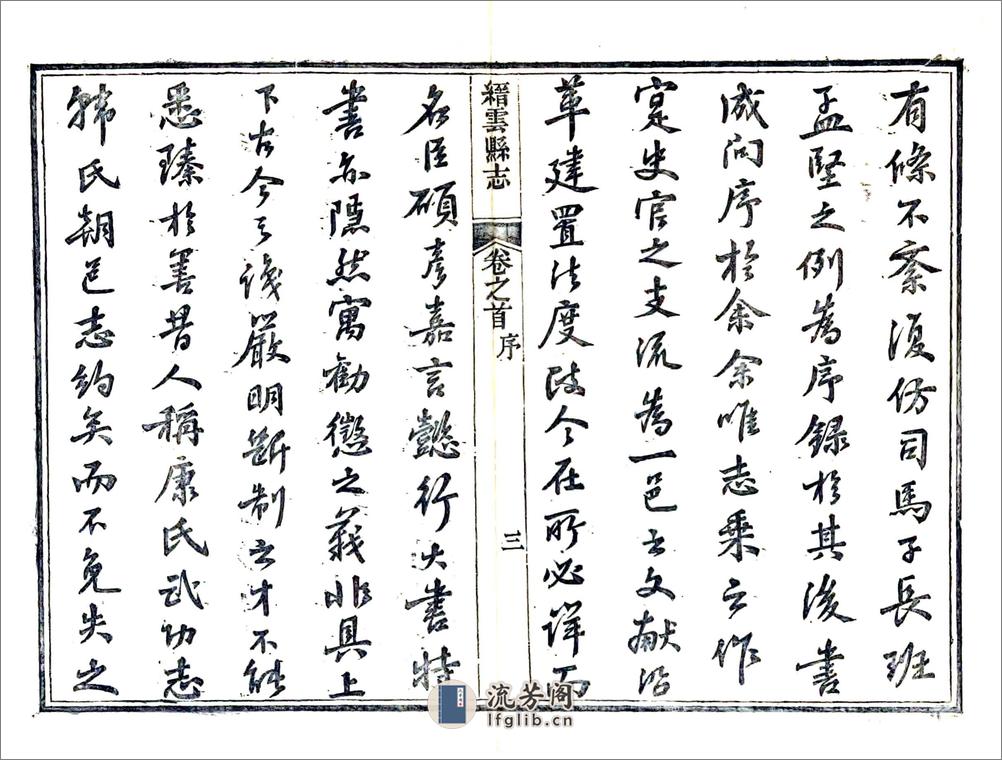 有條不紊復仿司馬子長班
孟堅之例為序錄於其後書
成問序於余余唯志乘之作
寔史官之支流為一邑之文獻沿
革建置法度政令在所必詳而
縉雲縣志
卷之首
序
三
名臣碩彥嘉言懿行大書特
書亦隱然寓勸懲之義非具上
下古今之識嚴明斷制之才不能
悉臻於善昔人稱康氏武功志
韓氏朝邑志約矣而不免失之
流芳阁
lfglib.cn